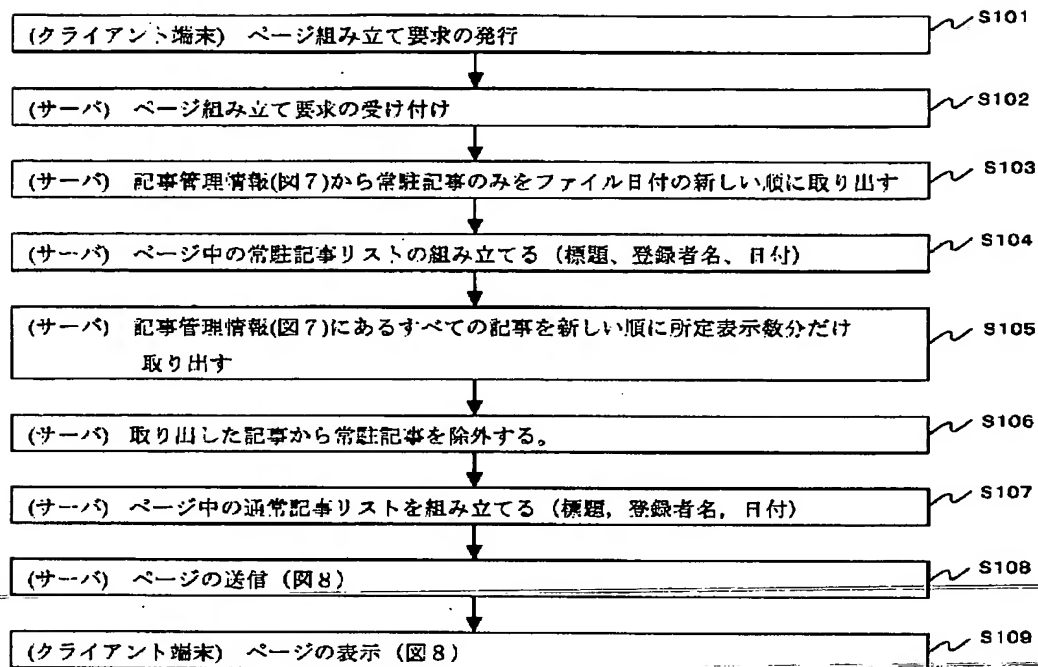 (クライアント端末) ページ組み立て要求の発行
S101
(サーバ) ページ組み立て要求の受け付け
S102
(サーバ) 記事管理情報(図7)から常駐記事のみをファイル日付の新しい順に取り出す
S103
(サーバ) ページ中の常駐記事リストの組み立てる (標題、登録者名、日付)
S104
(サーバ) 記事管理情報(図7)にあるすべての記事を新しい順に所定表示数分だけ
取り出す
S105
(サーバ) 取り出した記事から常駐記事を除外する。
S106
(サーバ) ページ中の通常記事リストを組み立てる (標題, 登録者名, 日付)
S107
(サーバ) ページの送信 (図8)
S108
(クライアント端末) ページの表示 (図8)
S109